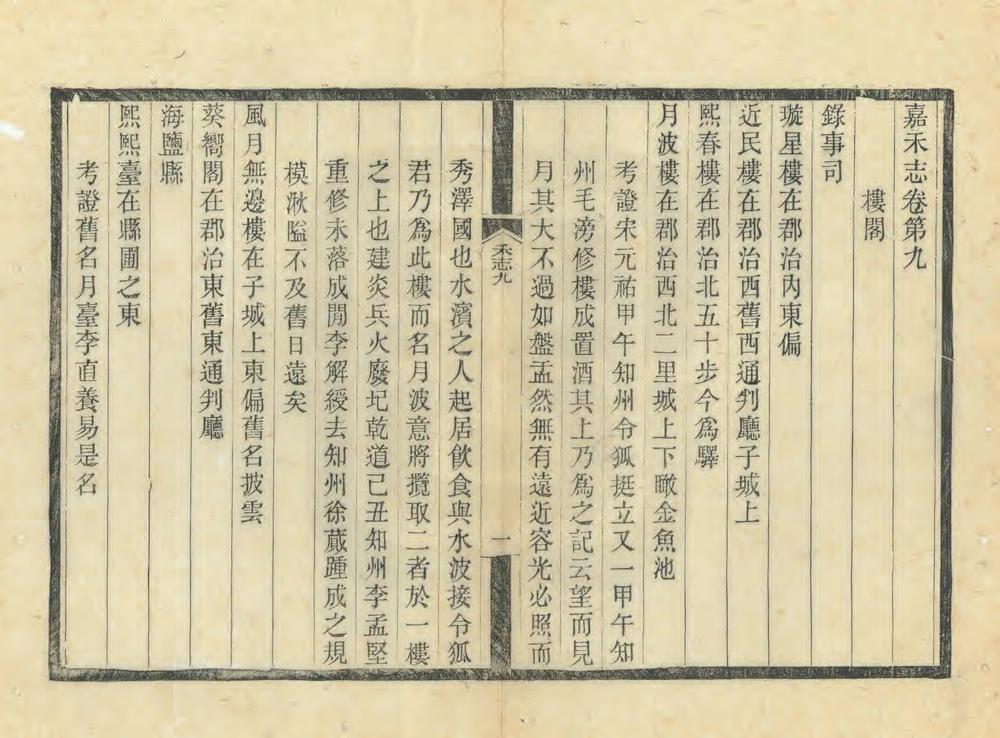 嘉禾志卷第九
樓閣
錄事司
璇星樓在郡治內東偏
近民樓在郡治西舊西通判廳子城上
熙春樓在郡治北五十步今為驛
月波樓在郡治西北二里城上下瞰金魚池
考證宋元祐甲午知州令狐挺立又一甲午知
州毛滂修樓成置酒其上乃為之記云望而見
月其大不過如盤盂然無有遠近容光必照而
禾志九
一
秀澤國也水濱之人起居飲食與水波接令狐
君乃為此樓而名月波意將攬取二者於一樓
之上也建炎兵火廢圮乾道己丑知州李孟堅
重修未落成閒李解綬去知州徐蕆踵成之規
模湫隘不及舊日遠矣
風月無邊樓在子城上東偏舊名披雲
葵嚮閣在郡治東舊東通判廳
海鹽縣
熙熙臺在縣圃之東
考證舊名月臺李直養易是名